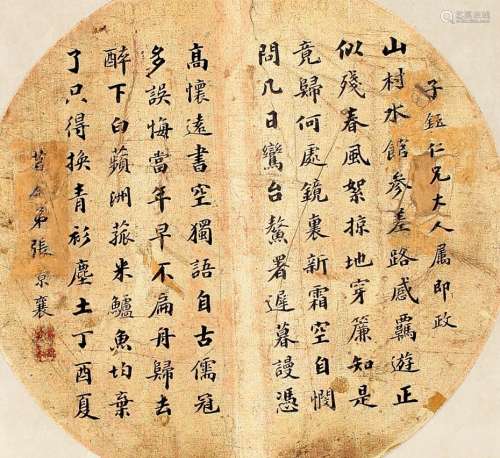 子鈺仁兄大人属即政
山村水館參差路感羈遊正
似殘春風絮掠地穿簾知是
竟歸何處鏡裏新霜空自憫
問几日鸞台鰲署遲暮謾憑
高懷遠書空獨語自古儒冠
多誤悔當年早不扁舟歸去
醉下白蘋洲菰米鱸魚均棄
了只得換青衫塵土丁酉夏
弟張京襄